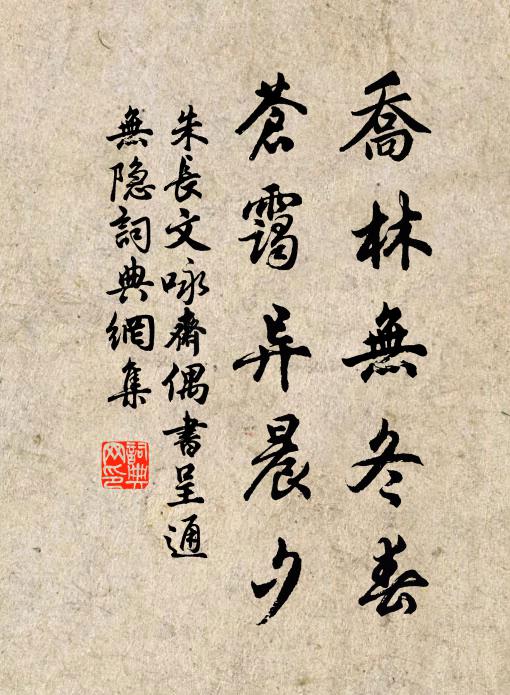 喬林無冬春
蒼靄异晨夕
朱長文咏齋偶書呈通
無隐詞典網集
詞典网印